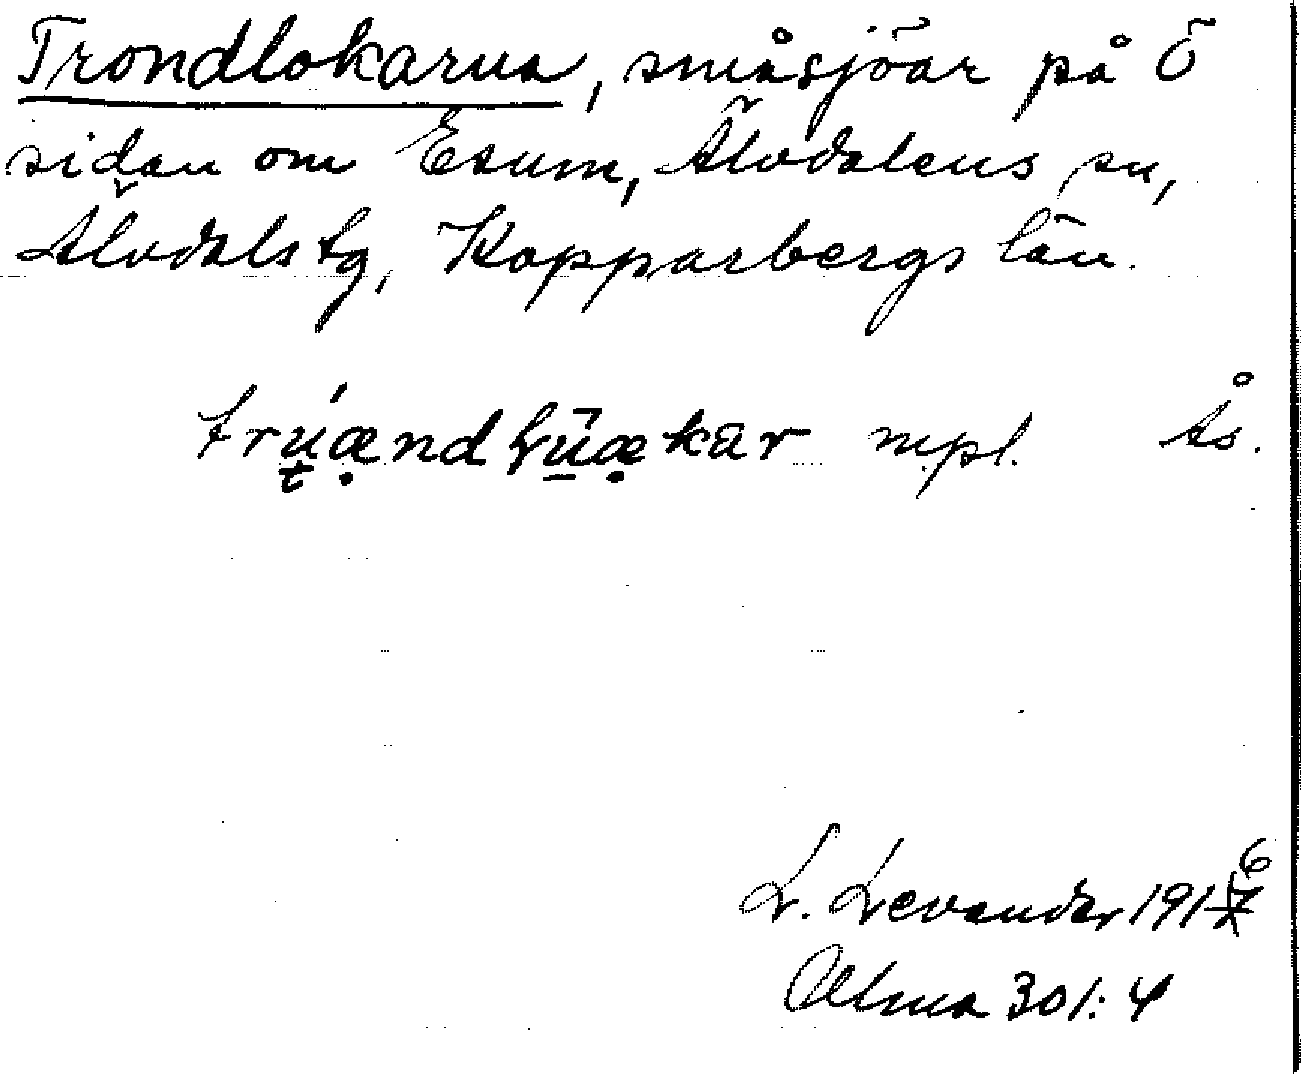 Trondlokarna, småsjöar på Ö
sidan om Esum, Älvdalens sn,
Älvdals tg, Kopparbergs län.
trúændlūækar mpl. Ås.
L. Levander 1916
Ulma 301:4